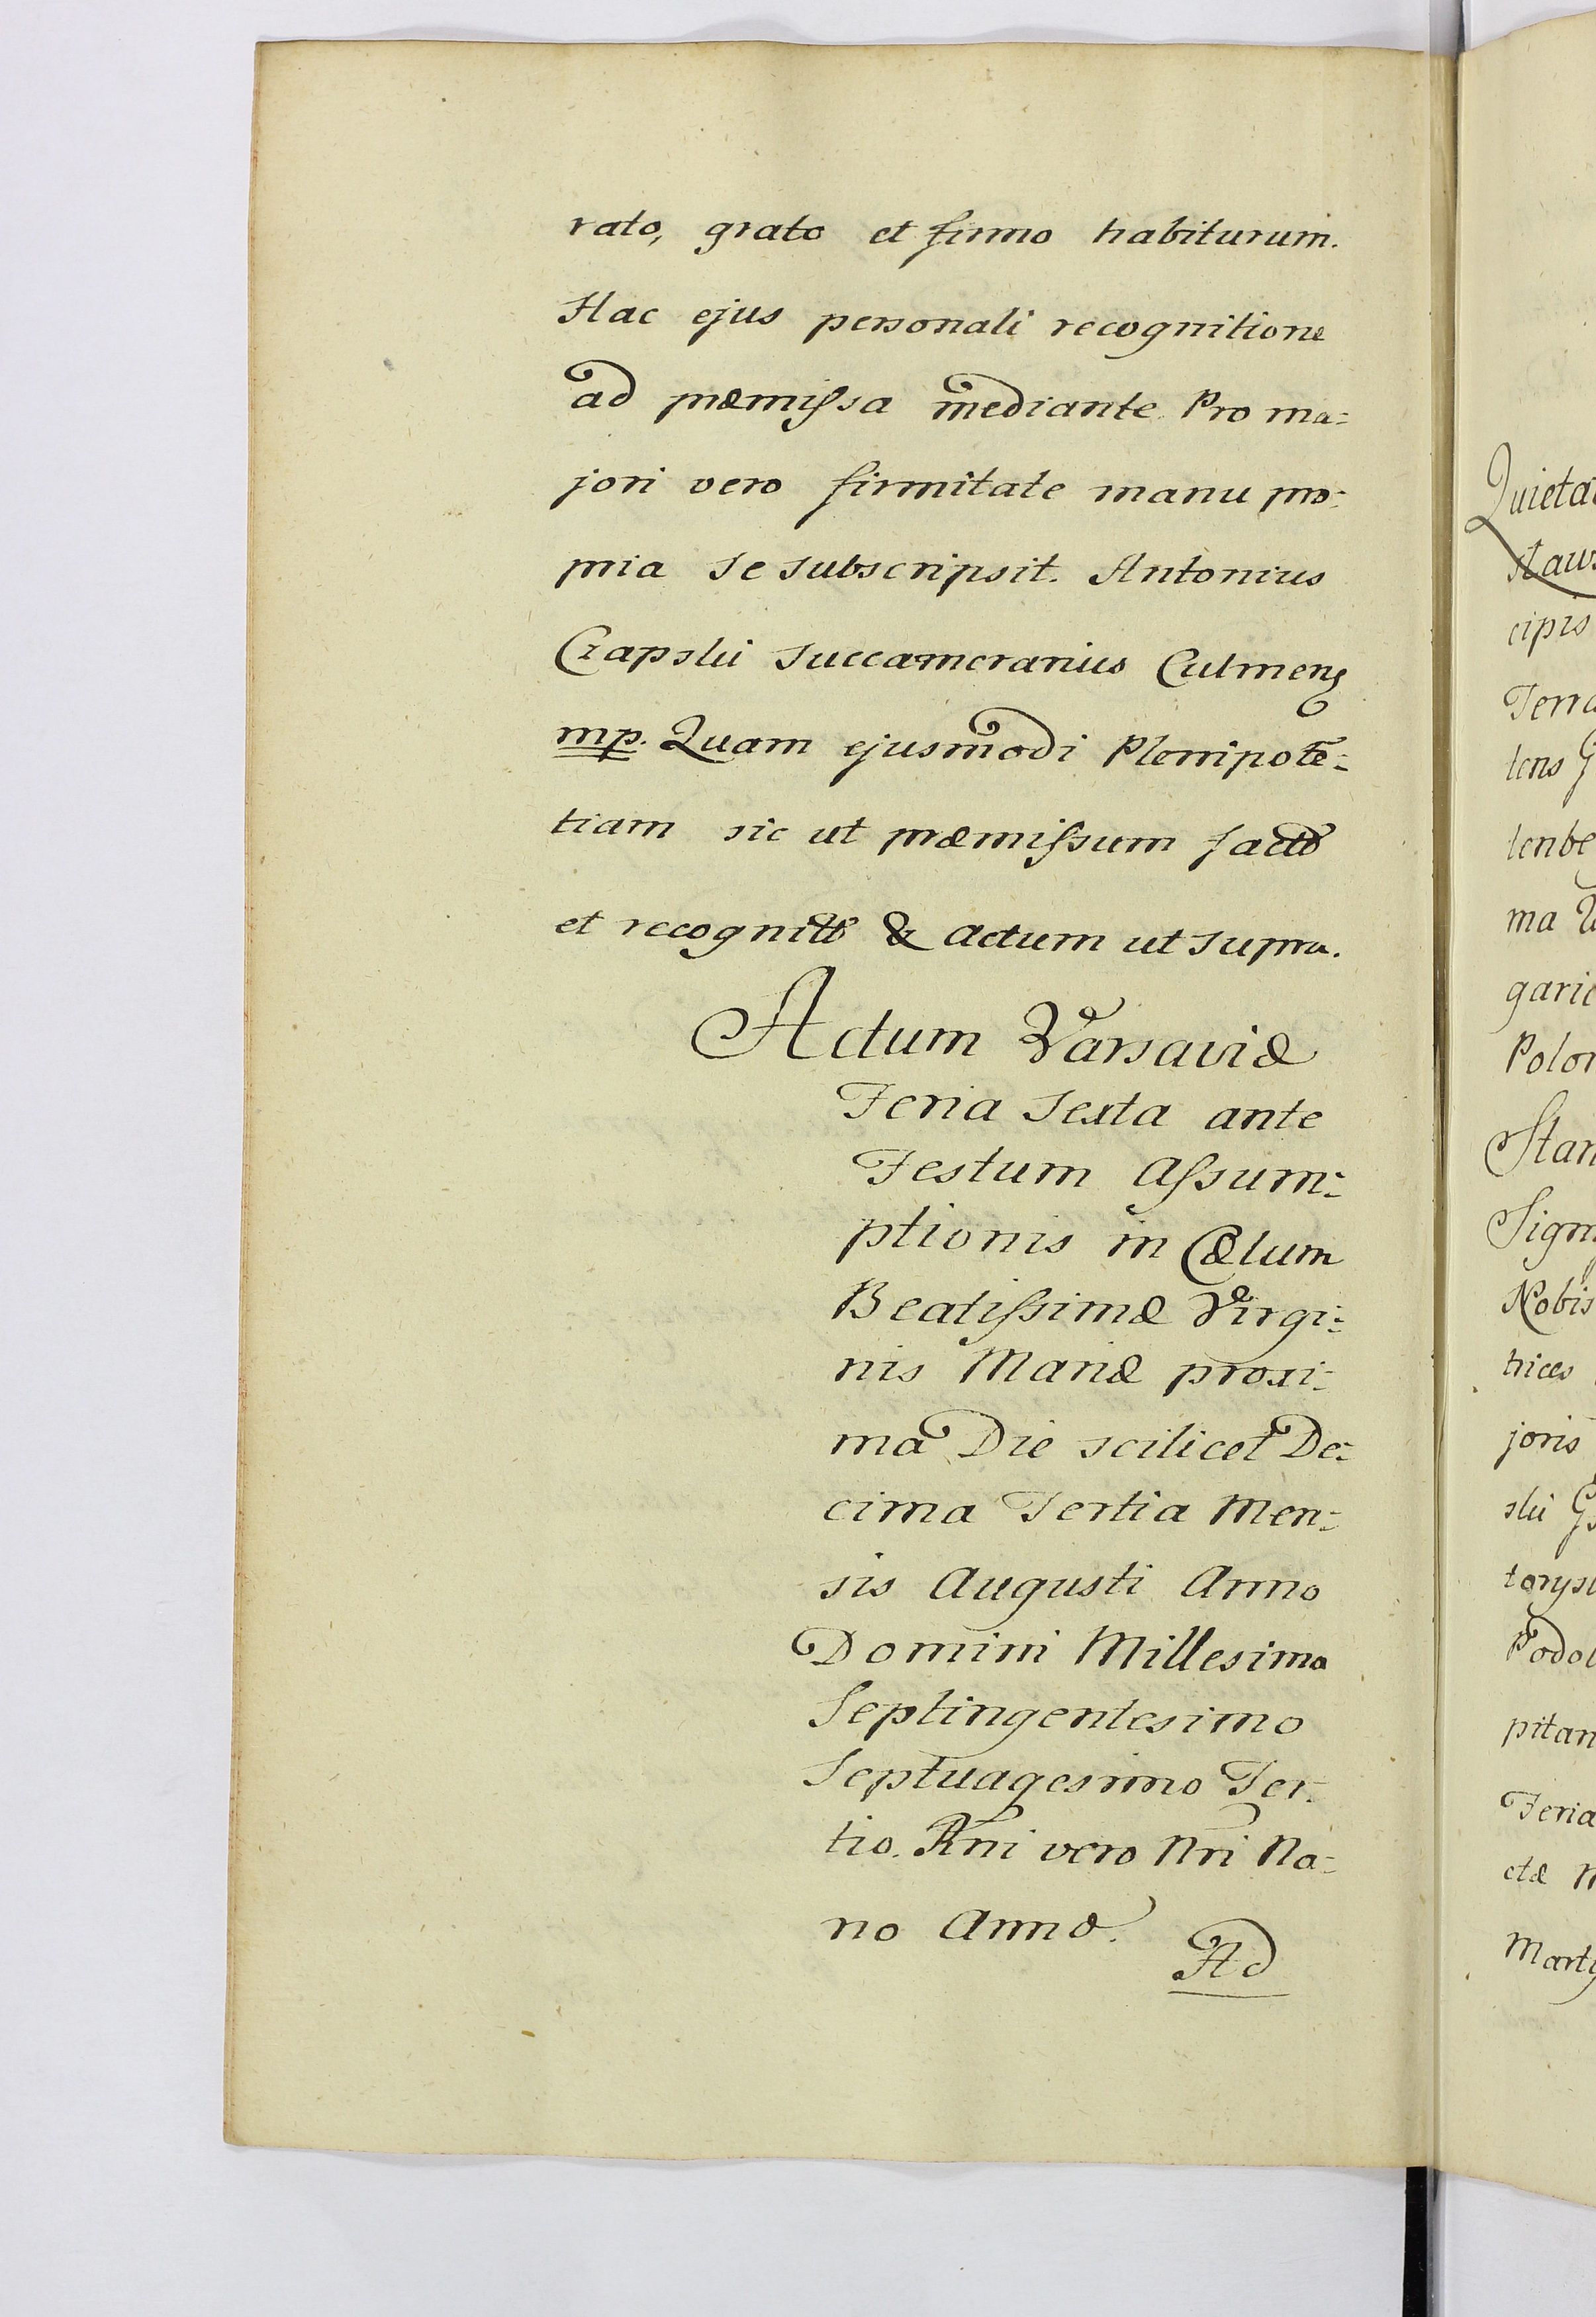 rato, grato et firmo habiturum.
Hac ejus personali recognitione
ad præmissa mediante. Pro ma=
jori vero firmitate manu pro=
pria se subscripsit. Antonius
Czapski Succamerarius Culmens
mp. Quam ejusmodi Plenipote̅=
tiam sic ut præmissum factt
et recognitt & Actum ut supra.
Actum Varsaviæ
Feria Sexta ante
Festum Assum=
ptionis in Cælum
Beatissimæ Virgi=
nis Mariæ proxi=
ma Die scilicet De=
cima Tertia Men=
sis Augusti Anno
Domini Millesimo
Septingentesimo
Septuagesimo Ter=
tio. Rni vero Nri No=
no Anno.
Ad
Quieta
staws
cipis
Terra
tens G
tenbe
ma
garic
Polon
Stan
Sigm
Nobis
trices
joris
ski
torysk
Podol
pitan
Feria
ctæ
Marty